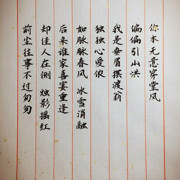 你本无意穿堂风
偏偏引山洪
独独心爱很
我是垂眉摆渡翁
如脉脉春风 冰雪消融
后来谁家喜宴重逢
却佳人在侧 烛影摇红
前尘往事不过匆匆